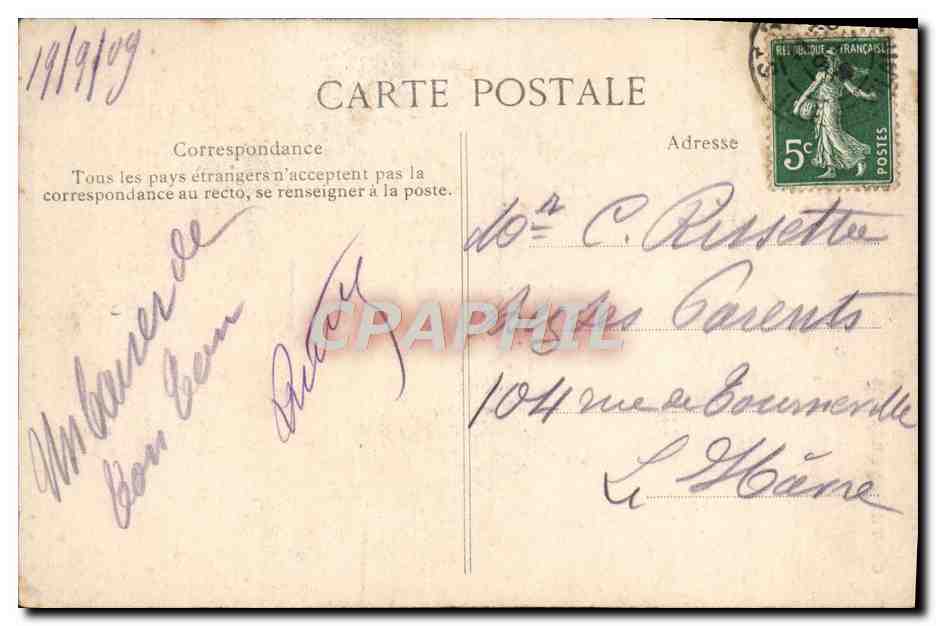 19/9/09
CARTE POSTALE
Correspondance
Tous les pays étrangers n'acceptent pas la
correspondance au recto, se renseigner à la poste.
Un baiser de
ton
Adresse
RÉPUBLIQUE FRANÇAISE
5c
POSTES
Mr C. Rissetti
Parents
104 rue de Tourneville
Le Hâvre
CPAPHIL